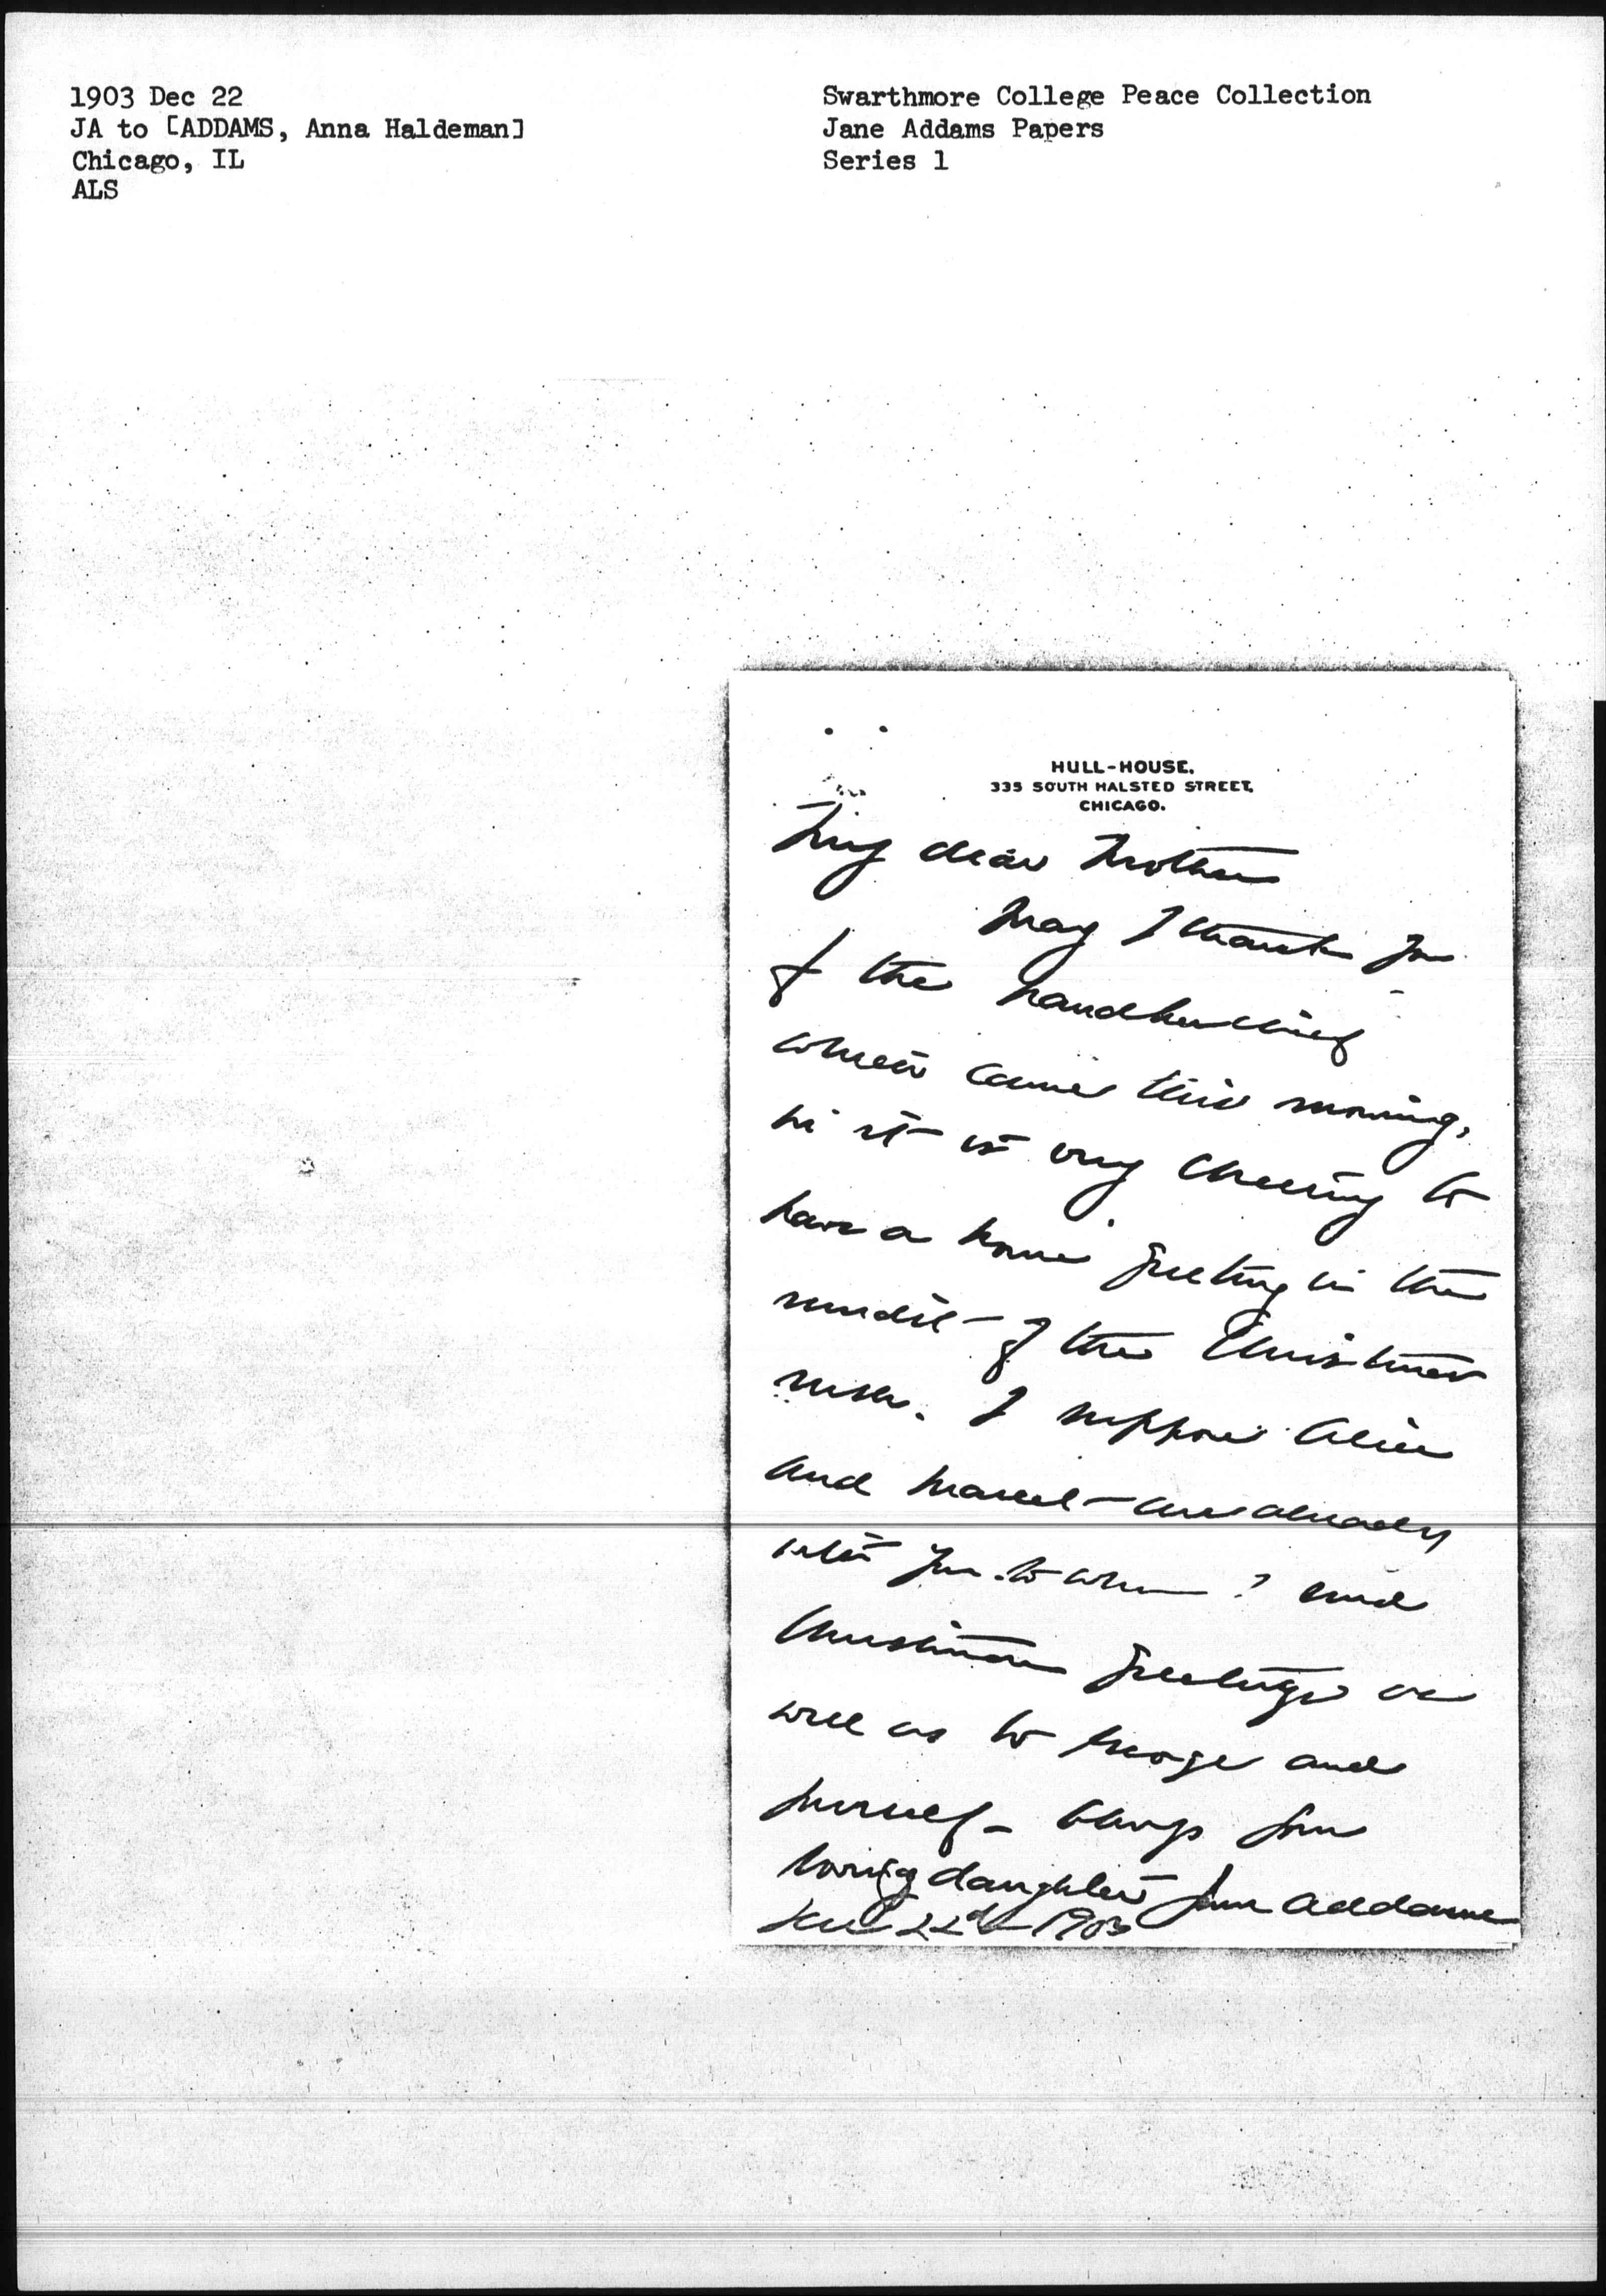 1903 Dec 22
JA to [ADDAMS, Anna Haldeman]
Chicago, IL
ALS
Swarthmore College Peace Collection
Jane Addams Papers
Series 1
HULL-HOUSE.
335 SOUTH HALSTED STREET,
CHICAGO.
My dear Mother
May I thank you
f the handkerchief
which came this morning,
it is very cheering to
have a home greeting in the
midst of the Christmas
rush. I suppose Alice
and Marcet are already
with you to whom I send
Christmas greetings as
well as to George and
yourself - Always your
loving daughter Jane Addams
Dec 22d 1903